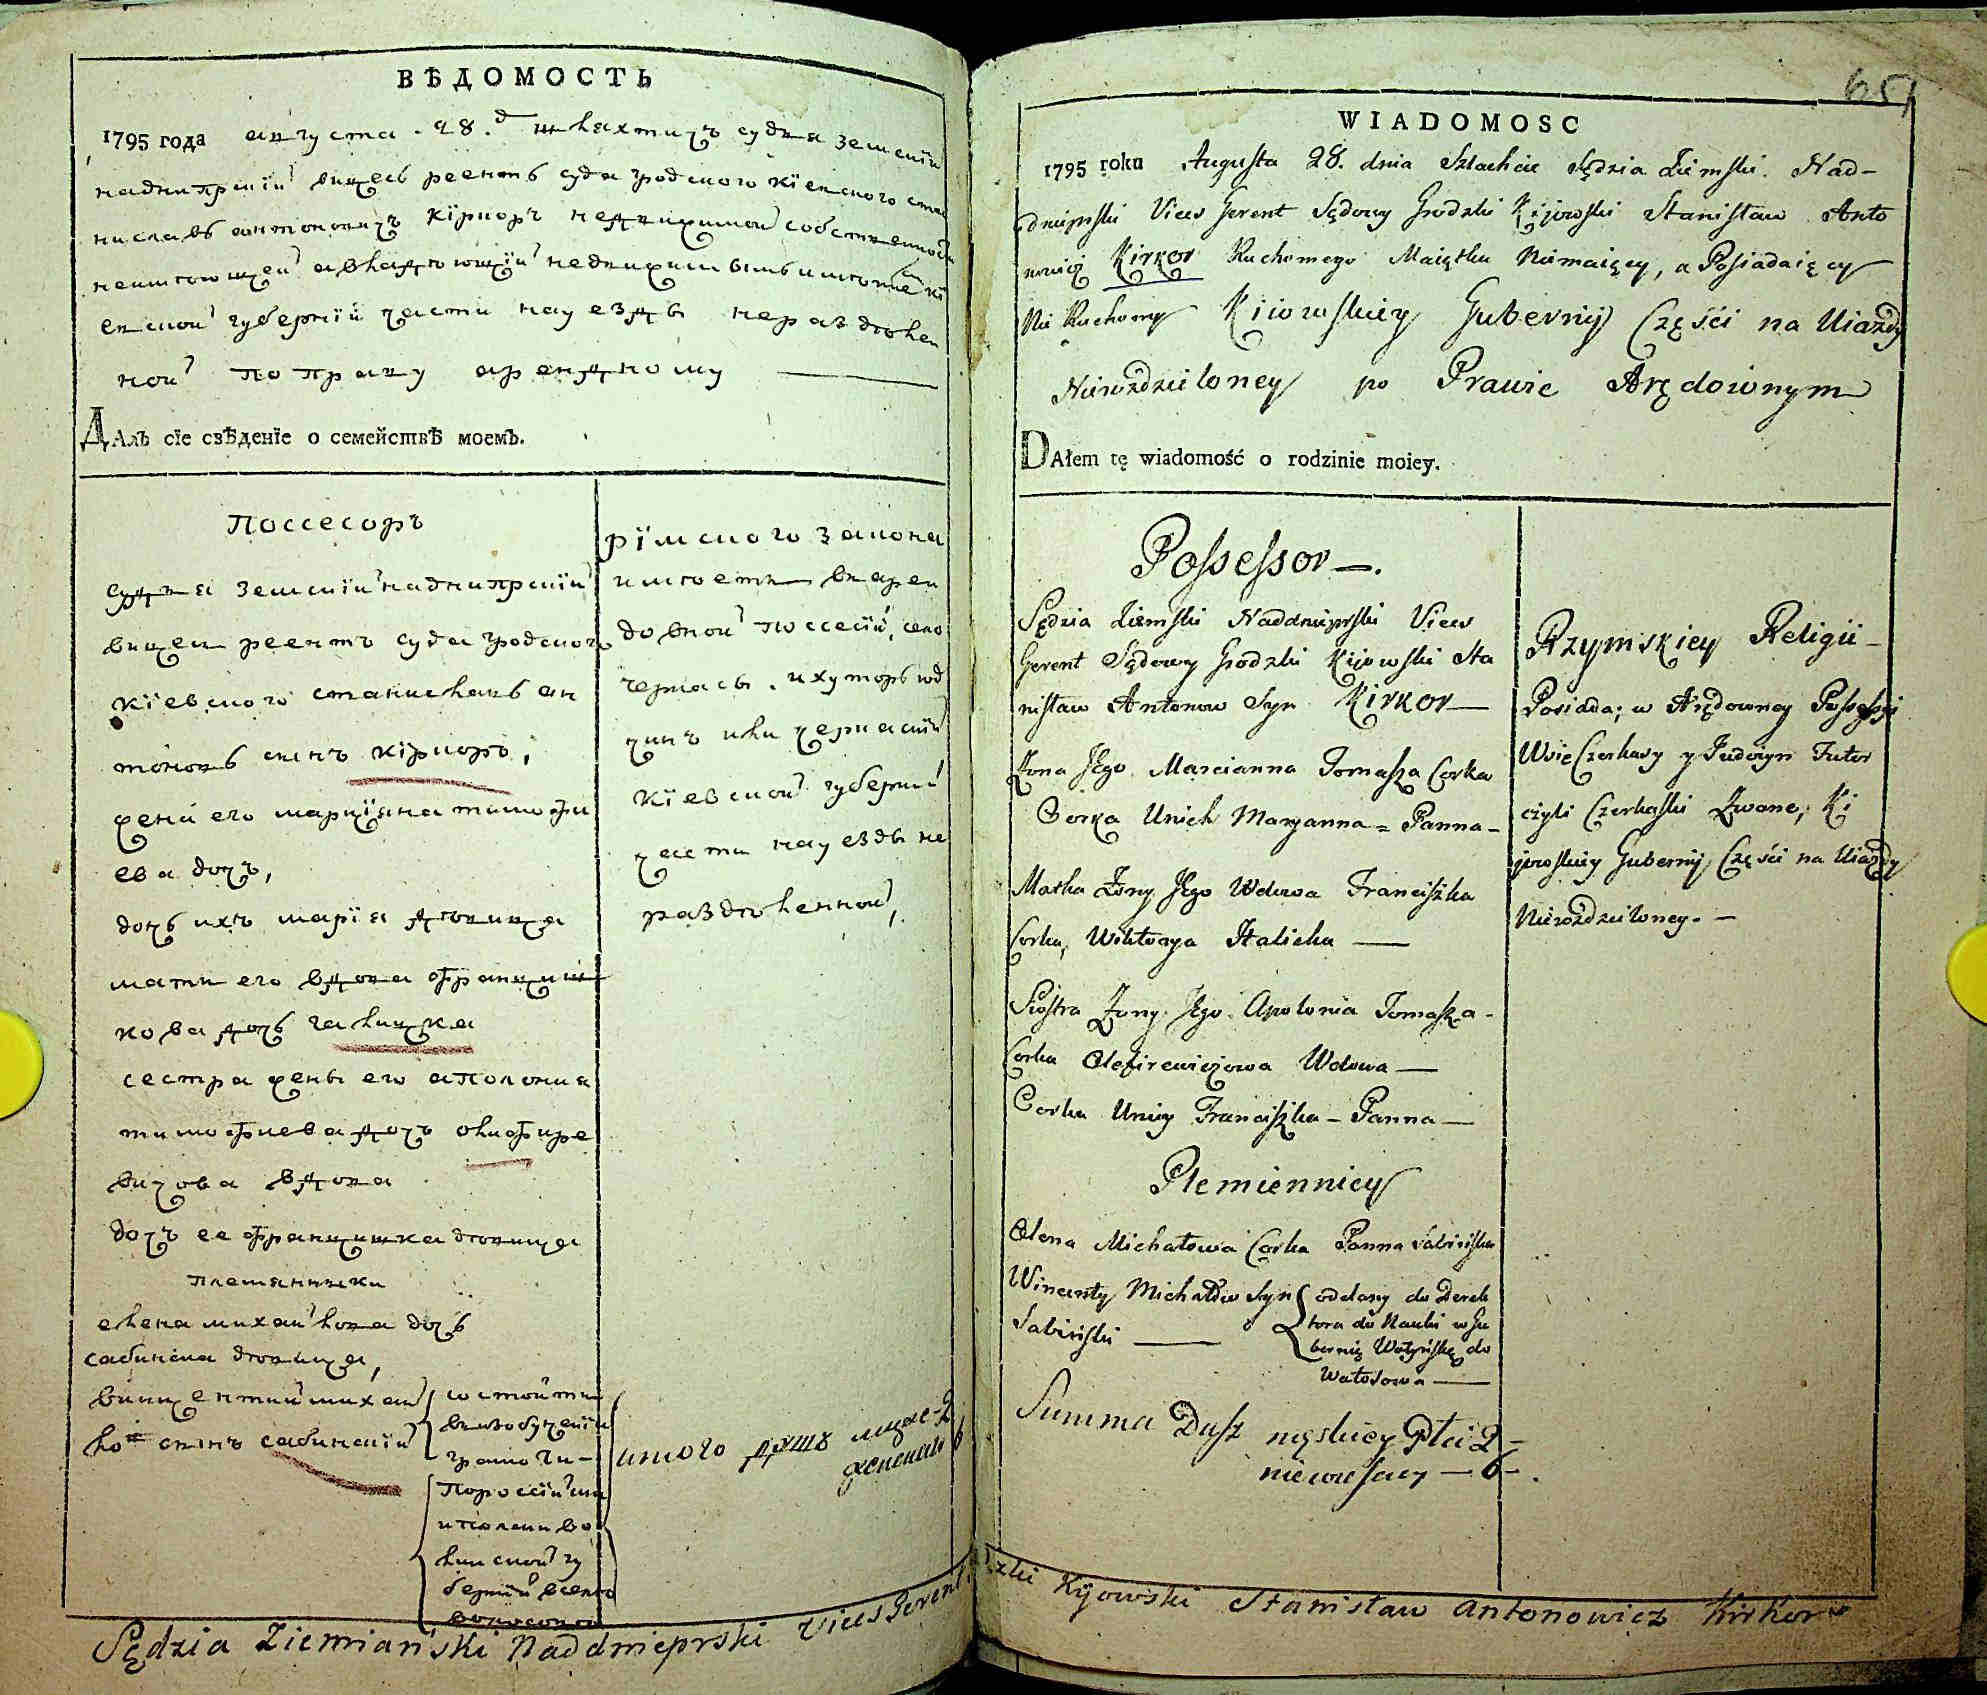 ВѢДОМОСТЬ
1795 года августа 28.д шляхтичъ судья земскїй
наднипрскїй вицесъ реентъ суда гродского кїевского ста
ниславъ антоновичъ кїркоръ недвижимой собственности
неимеющей авладеющїй недвижимымъ имѣнїе кї
евской губернїи части науезды нераздѣлен
ной по праву арендному
Далъ сїе свѣденїе о семействѣ моемъ.
Поссесоръ
судья земскїй наднипрскїй
вицеи реентъ суда гродского
кїевского станиславъ ан
тоновъ сынъ кїркоръ,
жена его марцїяна тимофи
ева дочъ,
дочь ихъ марїя дѣвица
мати его вдова францишь
кова дочь галицка
сестра жены его аполония
тимофиева дочъ олифире
вичова вдова
дочъ ее францишка дѣвица
племянники
елена михайлова дочь
сабинска дѣвица,
винцентий михай
ло сынъ сабинский
состойтъ
грамоти-
Пороссїйски
ипольски во
линской гу
бернїи
рїмского закона
имѣетъ варен
довной поссесїй, село
черкасы, ихуторъ юд
чинъ или черкаский
кїевской губернїи
части науезды не
раздѣленной,
итого душъ мужс-2
женскихъ 6
Sędzia Ziemiański Naddnieprski Vices Gerent
651
WIADOMOSC
1795 roku Augusta 28. dnia Szlachcic Sędzia Ziemski. Nad-
dnieprski Vices Gerent Sądowy Grodzki Kijowski Stanisław Anto
nowicz Kirkor Ruchomego Maiątku Niemaiący, a Posiadaiący
Nie Ruchomy Kiiowskiey Gubernij Części na Uiazdy
Nierozdzieloney po Prawie Arędownym
DAłem tę wiadomość o rodzinie moiey.
Possessor—.
Sędzia Ziemski Naddnieprski Vices
Gerent Sądowy Grodzki Kijowski Sta
nisław Antonow Syn Kirkor—
Żona Jego Marcianna Tomasza Corka
Corka Unich Maryanna = Panna-
Matka Żony Jego Wdowa Franciszka
Corka, Wiktorya Halicka —
Siostra Żony Jego Apolonia Tomasza-
Corka Olefirewiczowa Wdowa —
Corka Uniey Franciszka - Panna —
Plemiennicy
Olena Michałowa Corka Panna Sabińska
Wincenty Michałów Syn
Sabiński —
oddany do Derek
tora do Nauki w Gu
bernię Wołyńską do
Wołosowa —
Summa Dusz męskiey Płci 2-
niewieściey — 6-.
Rzymskiey Religii-
Posiada; w Arędowney Possessyi
Wsie Czerkasy y Judczyn Futor
czyli Czerkaski Zwane; Ki
jowskiey Gubernij Części na Uiazdy
Nierozdzieloney. -
dzki Kijowski Stanisław Antonowicz Kirkor